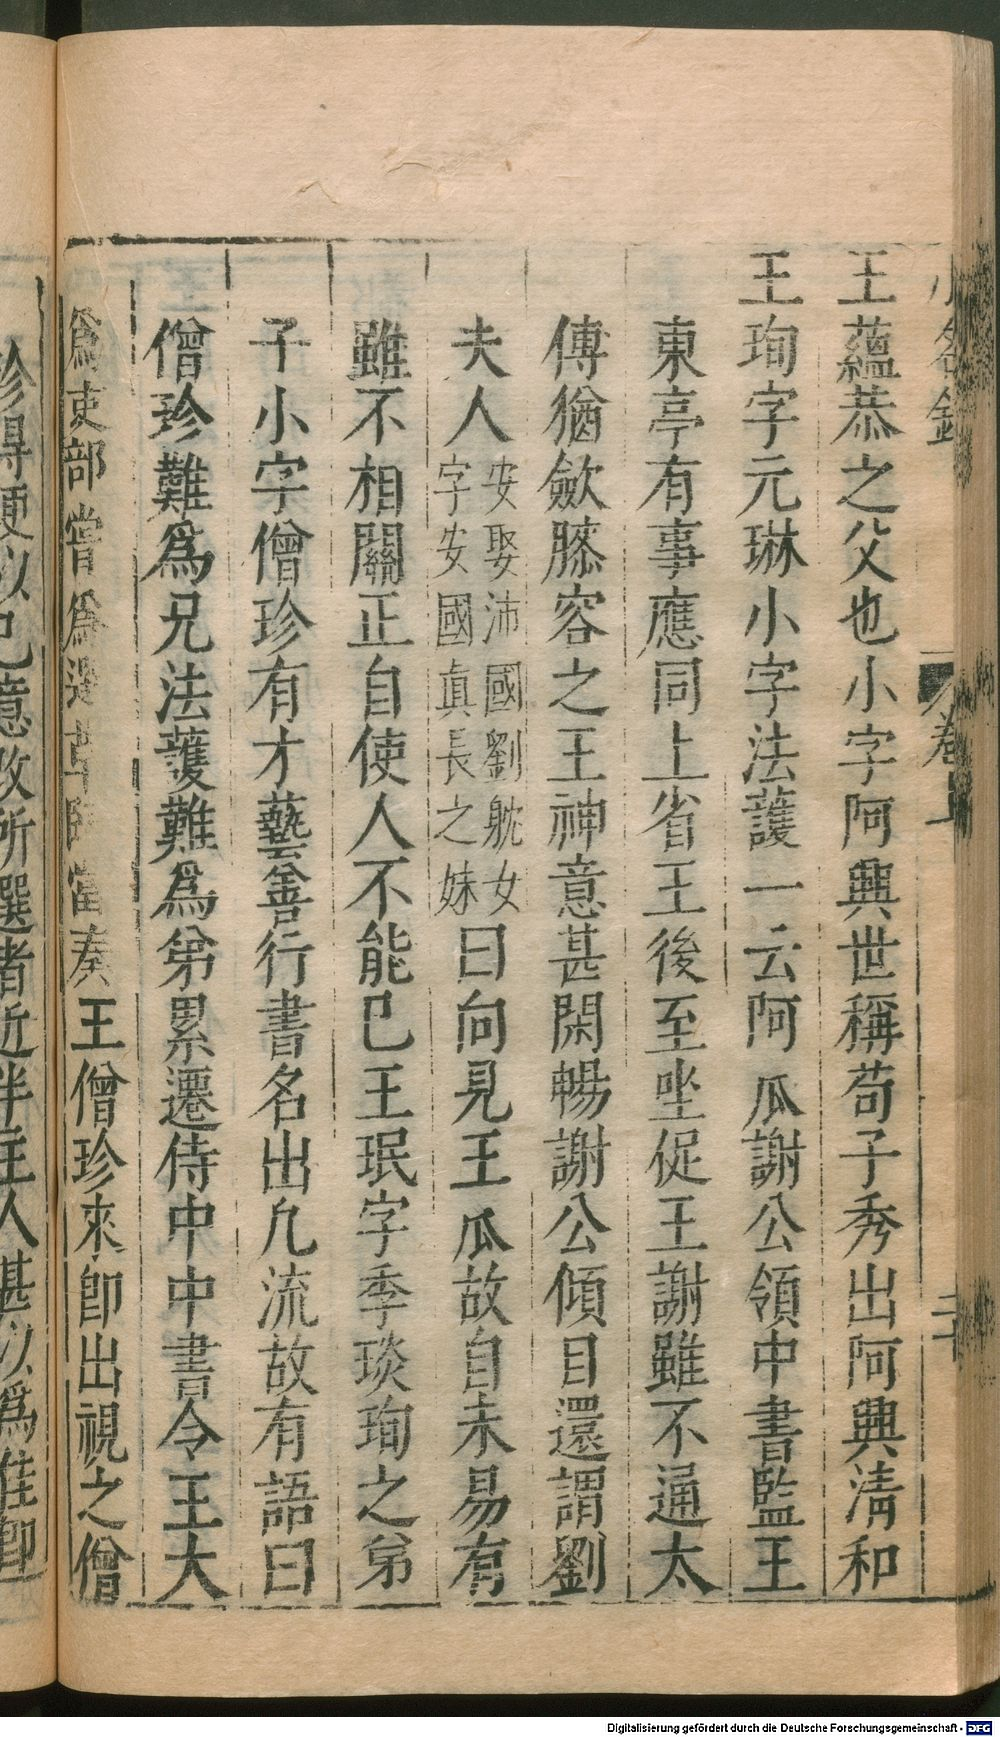 王蘊恭之父也小字阿興世稱苟子秀出阿興清和
王珣字元琳小字法護一云阿瓜謝公領中書監王
東亭有事應同上省王後至坐促王謝雖不通太
傅猶歛膝容之王神意甚閑暢謝公傾目還謂劉
夫人安娶沛國劉躭女字安國真長之妹曰向見王瓜故自未易有
雖不相關正自使人不能已王珉字季琰珣之弟
子小字僧珍有才藝善行書名出凡流故有語曰
僧珍難爲兄法護難爲弟累遷侍中中書令王大
爲吏部嘗爲選草臨當奏王僧珍來卽出視之僧
珍得便以已意改所選者近半主人甚以爲佳卽
Digitalisierung gefördert durch die Deutsche Forschungsgemeinschaft - DFG